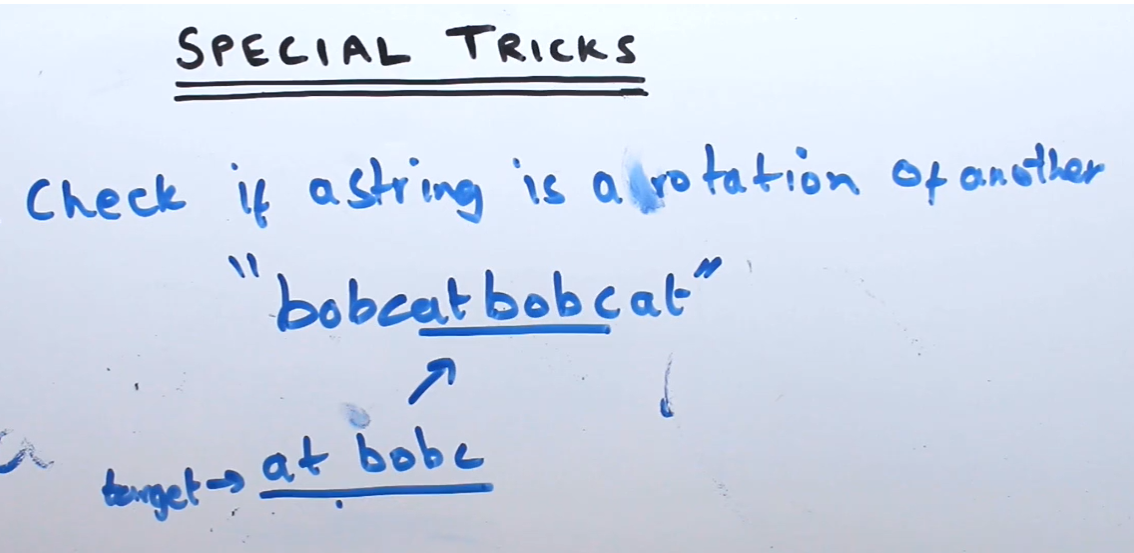 SPECIAL TRICKS
Check if a string is a rotation of another
"bobcatbobcat"
target → at bobc